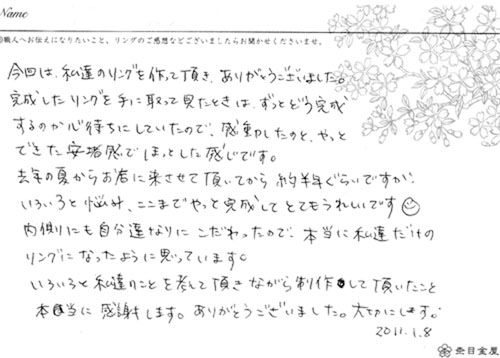 Name
職人へお伝えになりたいこと、リングのご感想などございましたらお聞かせくださいませ。
今回は、私達のリングを作って頂き、ありがとうございました。
完成したリングを手に取って見たときは、ずっとどう完成
するのか心待ちにしていたので、感動したのと、やっと
できた安堵感でほっとした感じです。
去年の夏からお店に来させて頂いてから約半年ぐらいですが、
いろいろと悩み、ここまでやっと完成してとてもうれしいです
内側にも自分達なりにこだわったので、本当に私達だけの
リングになったように思っています。
いろいろと私達のことを考えて頂きながら制作して頂いたこと
本当に感謝します。ありがとうございました。大切にします。
2011.1.8
杢目金屋